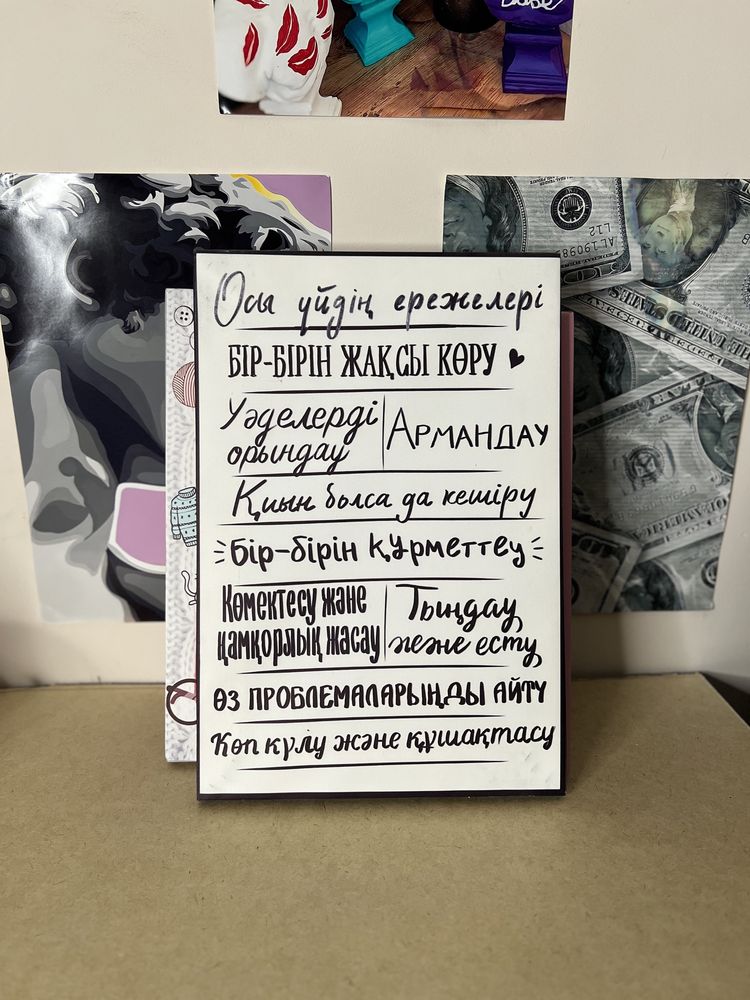 Осы үйдің ережелері
БІР-БІРІН ЖАҚСЫ КӨРУ
Уәделерді
орындау
АРМАНДАУ
Қиын болса да кешіру
Бір-бірін құрметтеу
Көмектесу және
қамқорлық жасау
Тыңдау
және есту
ӨЗ ПРОБЛЕМАЛАРЫҢДЫ АЙТУ
Көп күлу және құшақтасу
L 12